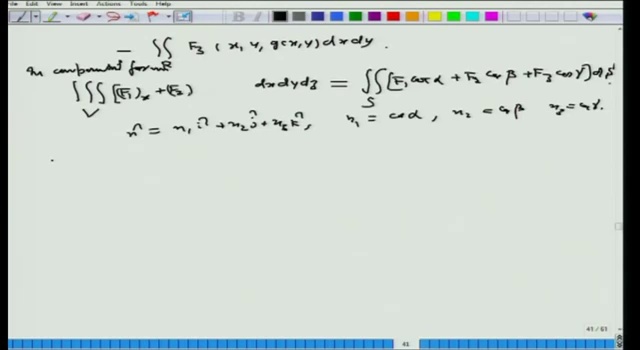 File Edit View Insert Actions Tools Help
− ∬_R F₃ (x, y, g(x,y)) dx dy.
In component form
∭_V [(F₁)ₓ + (F₂) dx dy dz = ∬_S [F₁ cos α + F₂ cos β + F₃ cos γ] ds
n̂ = n₁ î + n₂ ĵ + n₃ k̂, n₁ = cos α, n₂ = cos β n₃ = cos γ.
41 / 61
41